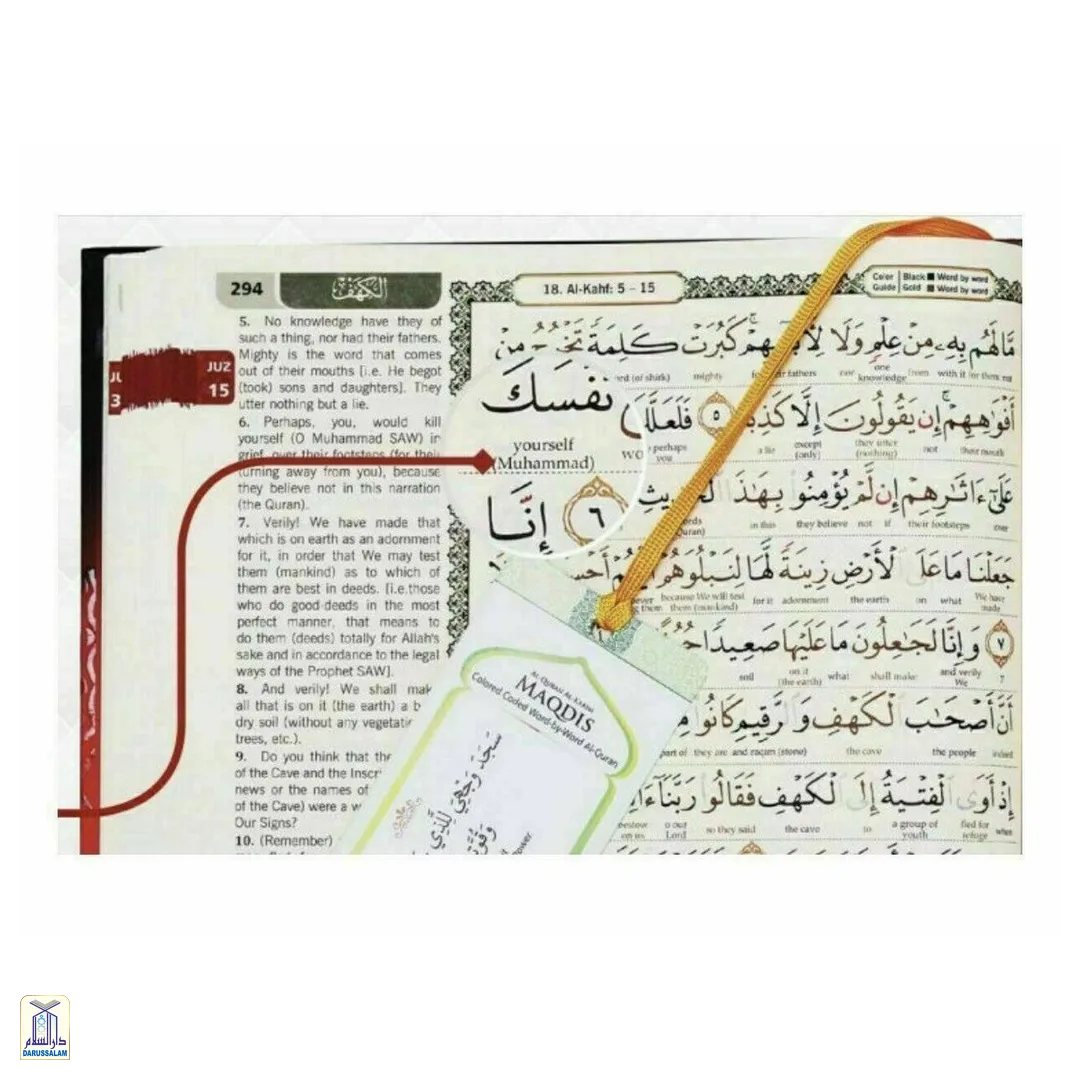 294
الكهف
18. Al-Kahf: 5 – 15
Color Guide
Black ■ Word by word
Gold ■ Word by word
JUZ
15
5. No knowledge have they of
such a thing, nor had their fathers.
Mighty is the word that comes
out of their mouths [i.e. He begot
(took) sons and daughters]. They
utter nothing but a lie.
6. Perhaps, you, would kill
yourself (O Muhammad SAW) in
grief, over their footsteps (for their
turning away from you), because
they believe not in this narration
(the Quran).
7. Verily! We have made that
which is on earth as an adornment
for it, in order that We may test
them (mankind) as to which of
them are best in deeds. [i.e.those
who do good deeds in the most
perfect manner, that means to
do them (deeds) totally for Allah's
sake and in accordance to the legal
ways of the Prophet SAW].
8. And verily! We shall mak
all that is on it (the earth) a b
dry soil (without any vegetati
trees, etc.).
9. Do you think that the
of the Cave and the Inscri
news or the names of
of the Cave) were a w
Our Signs?
10. (Remember)
مَا لَهُم بِهِ مِنْ عِلْمٍ وَلَا كَبُرَتْ كَلِمَةً تَخْرُجُ مِنْ
(word (of shirk) mighty fathers nor one knowledge from with it for them not
أَفْوَاهِهِمْ إِن يَقُولُونَ إِلَّا كَذِبًا ٥ فَلَعَلَّكَ
perhaps you a lie except (only) they utter (nothing) not their mouth
نَفْسَكَ
yourself
(Muhammad)
عَلَىٰ ءَاثَارِهِمْ إِن لَّمْ يُؤْمِنُوا بِهَٰذَا الْحَدِيثِ
in this they believe not if their footsteps over
٦ إِنَّا
جَعَلْنَا مَا عَلَى الْأَرْضِ زِينَةً لَّهَا لِنَبْلُوَهُمْ
because We will test them (mankind) for it adornment the earth on what We have made
٧ وَإِنَّا لَجَاعِلُونَ مَا عَلَيْهَا صَعِيدًا
soil on it (the earth) what shall make and verily We 7
أَنَّ أَصْحَابَ الْكَهْفِ وَالرَّقِيمِ كَانُوا
part of they are and raqim (stone) the cave the people indeed
إِذْ أَوَى الْفِتْيَةُ إِلَى الْكَهْفِ فَقَالُوا رَبَّنَا
bestow on us o our Lord so they said the cave to a group of youth fled for refuge when
AL-QURAN AL-KARIM
MAQDIS
Colored Coded Word-by-Word Al-Quran
سَجَدَ وَجْهِيَ لِلَّذِي
دار السلام
DARUSSALAM